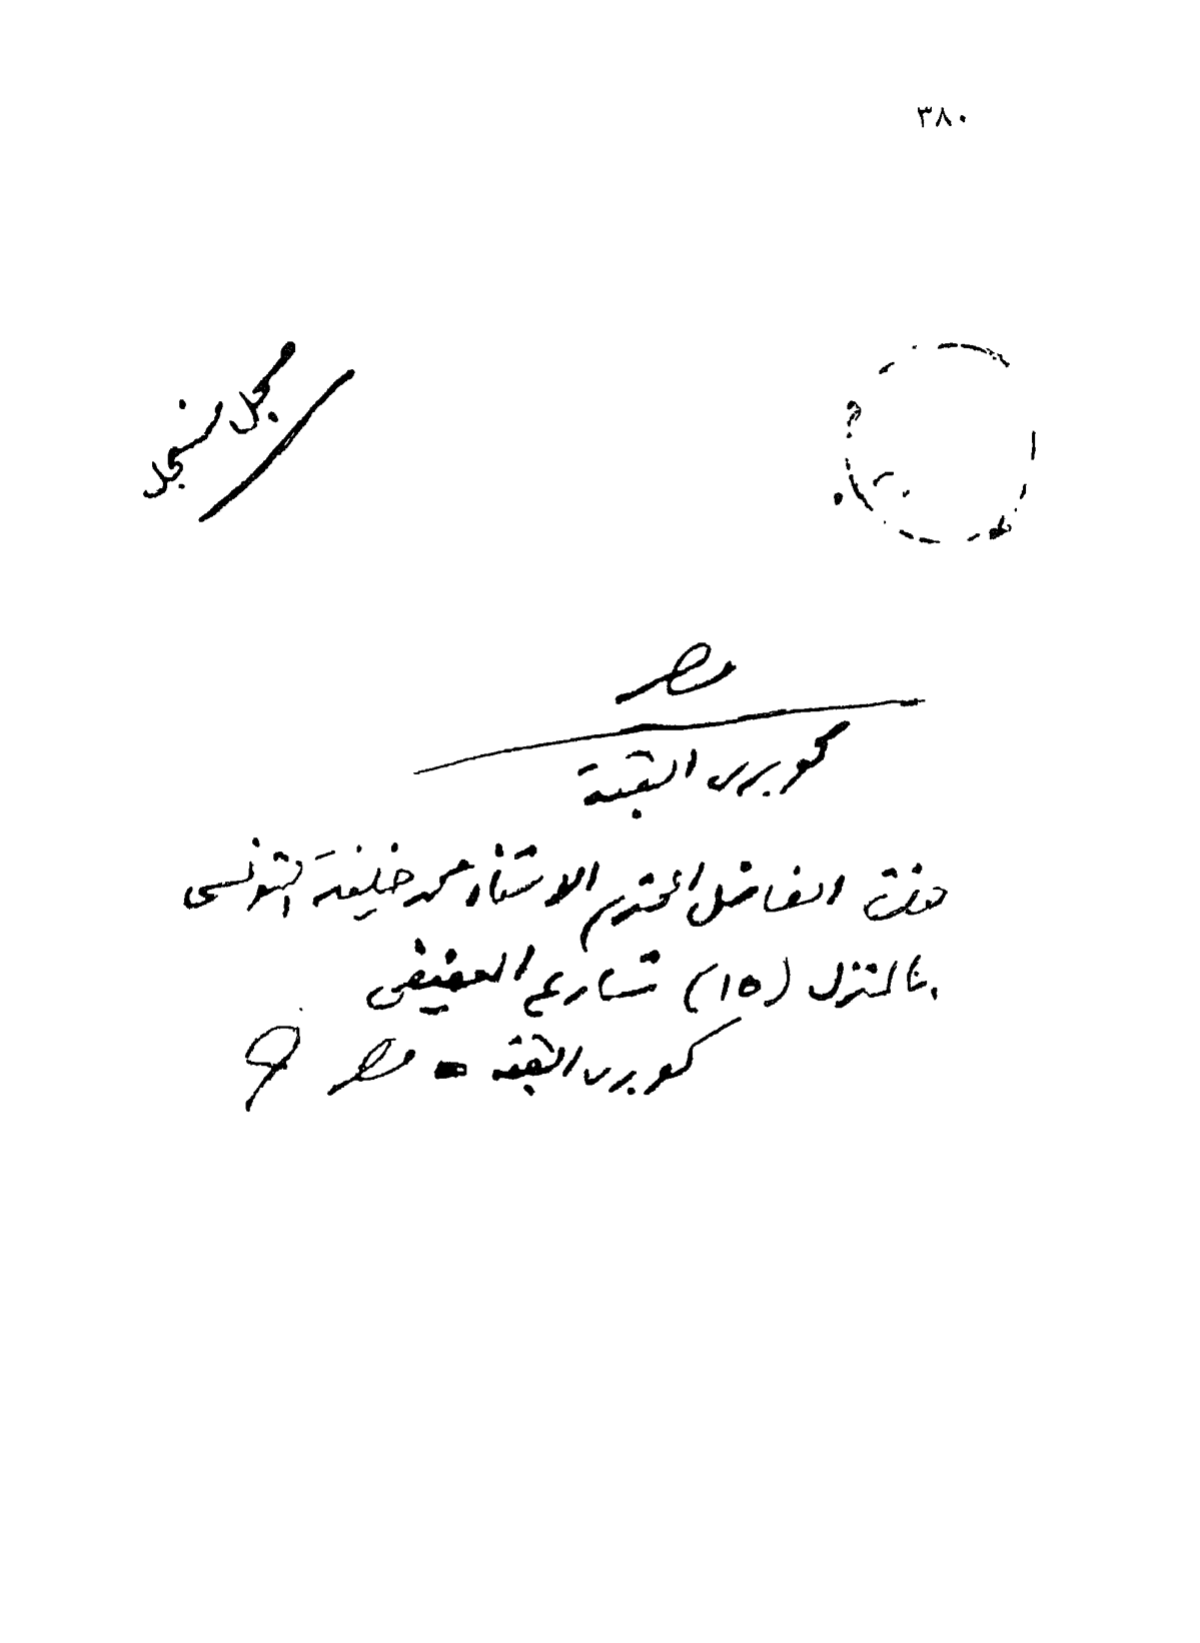 ٣٨٠
مصر
كوبرى القبة
حضرة الفاضل المحترم الاستاذ محمد خليفة التونسى
بالمنزل (١٥) شارع العفيفى
كوبرى القبة - مصر